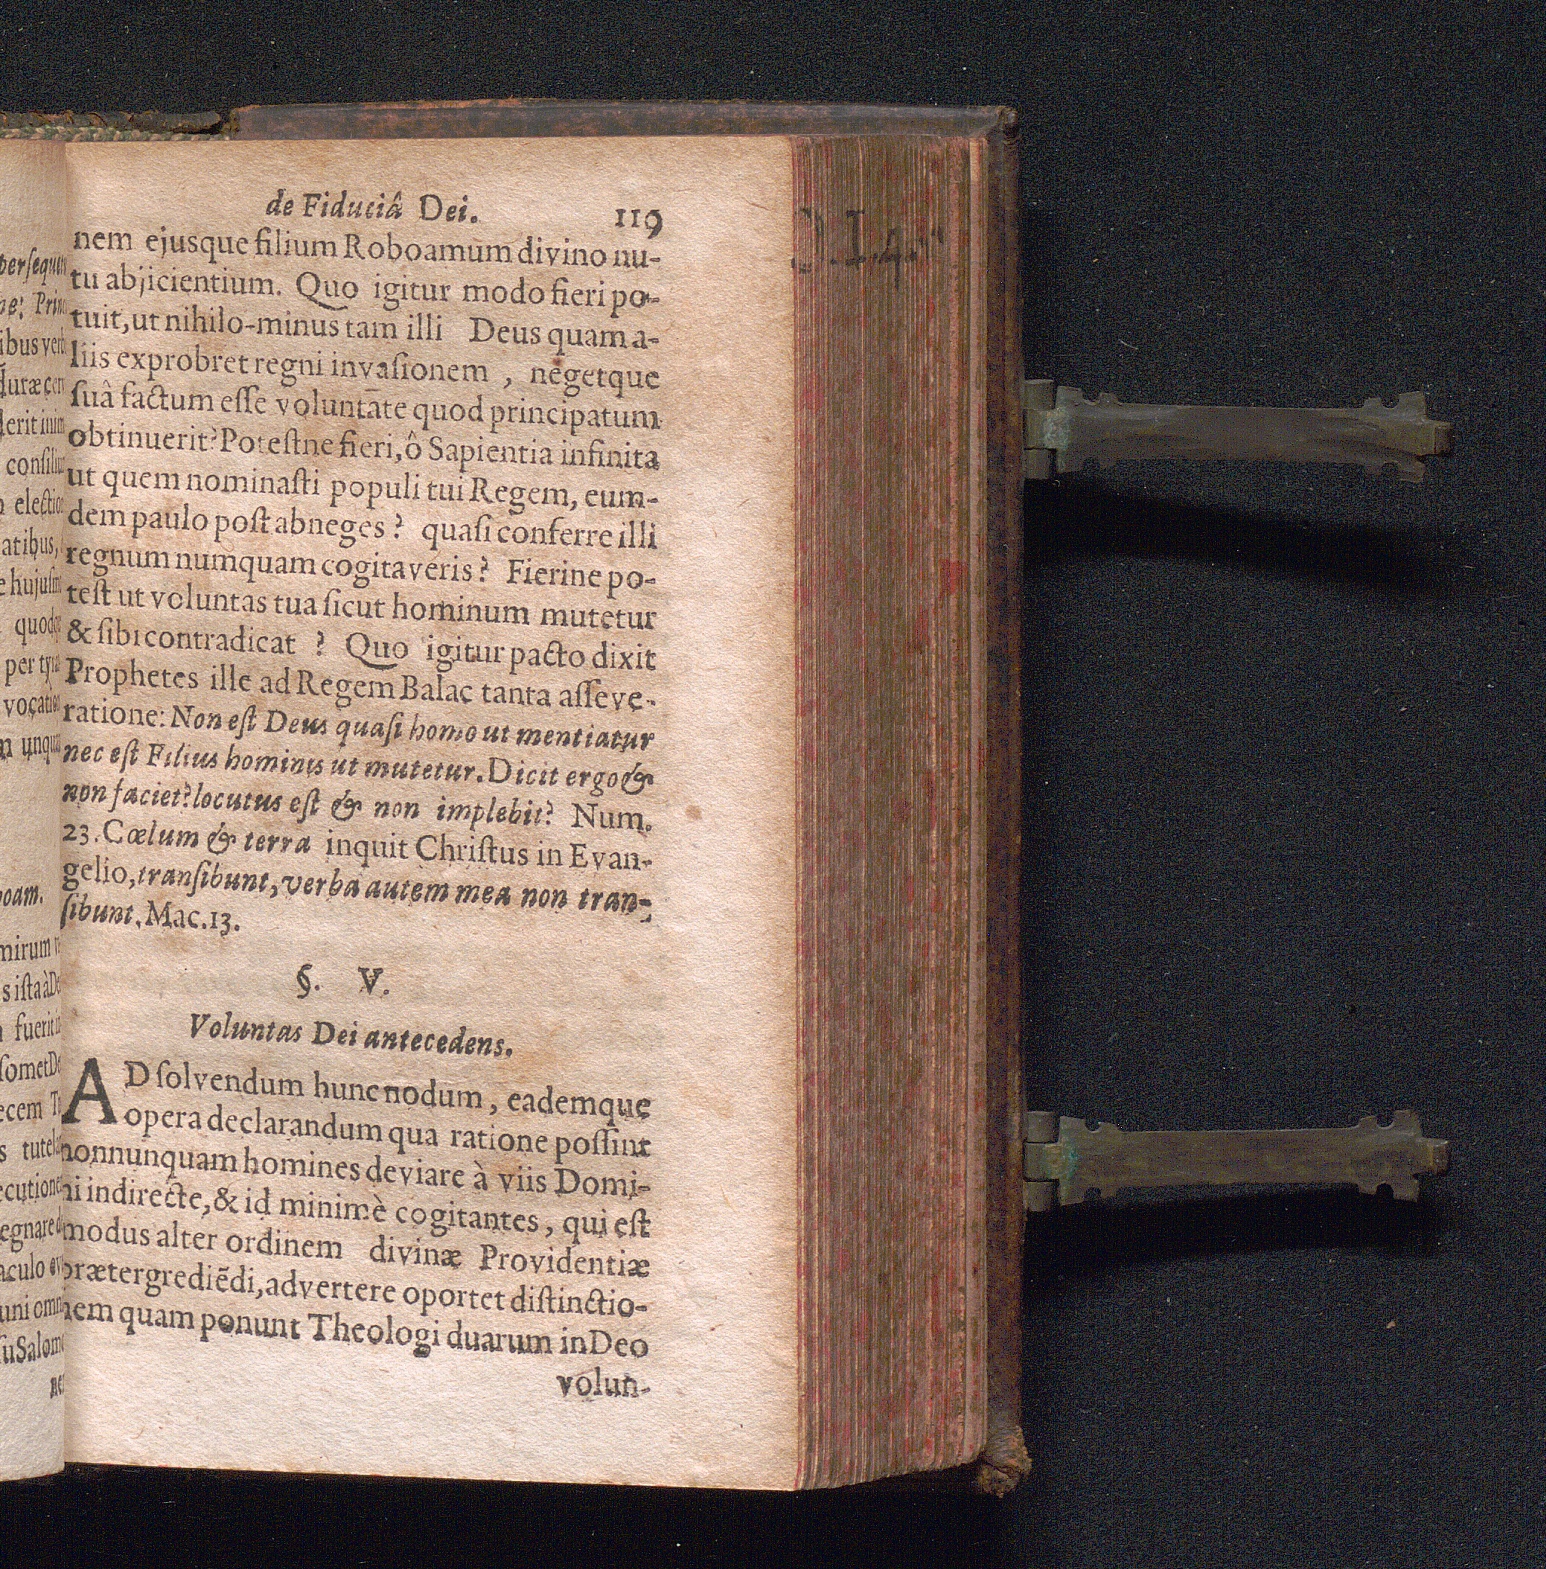 de Fiduciâ Dei. 119
nem ejusque filium Roboamum divino nu-
tu abjicientium. Quo igitur modo fieri po-
tuit, ut nihilo-minus tam illi Deus quam a-
liis exprobret regni invaſionem, negetque
ſuâ factum eſſe voluntate quod principatum
obtinuerit? Poteſtne fieri, ô Sapientia infinita
ut quem nominaſti populi tui Regem, eum-
dem paulo poſt abneges? quaſi conferre illi
regnum numquam cogitaveris? Fierine po-
teſt ut voluntas tua ſicut hominum mutetur
& ſibi contradicat ? Quo igitur pacto dixit
Prophetes ille ad Regem Balac tanta aſſeve-
ratione: Non eſt Deus quaſi homo ut mentiatur
nec eſt Filius hominis ut mutetur. Dicit ergo &
non faciet? locutus eſt & non implebit? Num.
23. Cœlum & terra inquit Chriſtus in Evan-
gelio, tranſibunt, verba autem mea non tran-
ſibunt. Mac. 13.
§. V.
Voluntas Dei antecedens.
AD ſolvendum hunc nodum, eademque
opera declarandum qua ratione poſſint
nonnunquam homines deviare à viis Domi-
ni indirecte, & id minimè cogitantes, qui eſt
modus alter ordinem divinæ Providentiæ
prætergrediẽdi, advertere oportet diſtinctio-
nem quam ponunt Theologi duarum in Deo
volun-